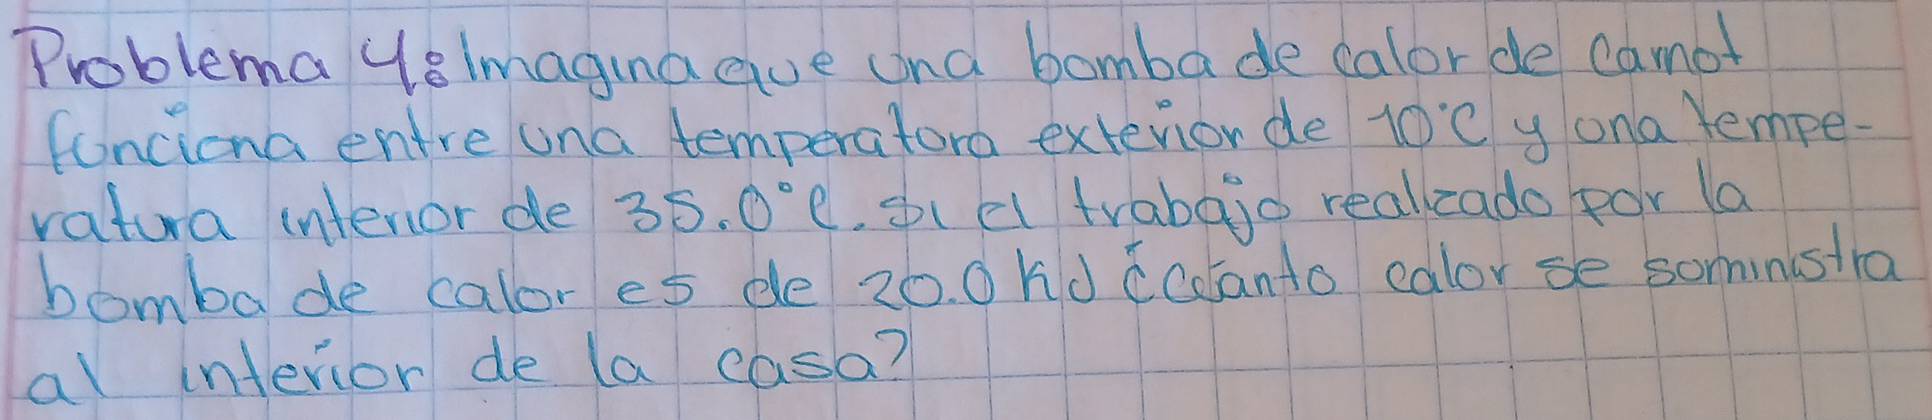 Problema 4: Imagina que una bomba de calor de Carnot
funciona entre una temperatura exterior de 10°C y una tempe-
ratura interior de 35.0°C. Si el trabajo realizado por la
bomba de calor es de 20.0 kJ ¿Cuánto calor se suministra
al interior de la casa?